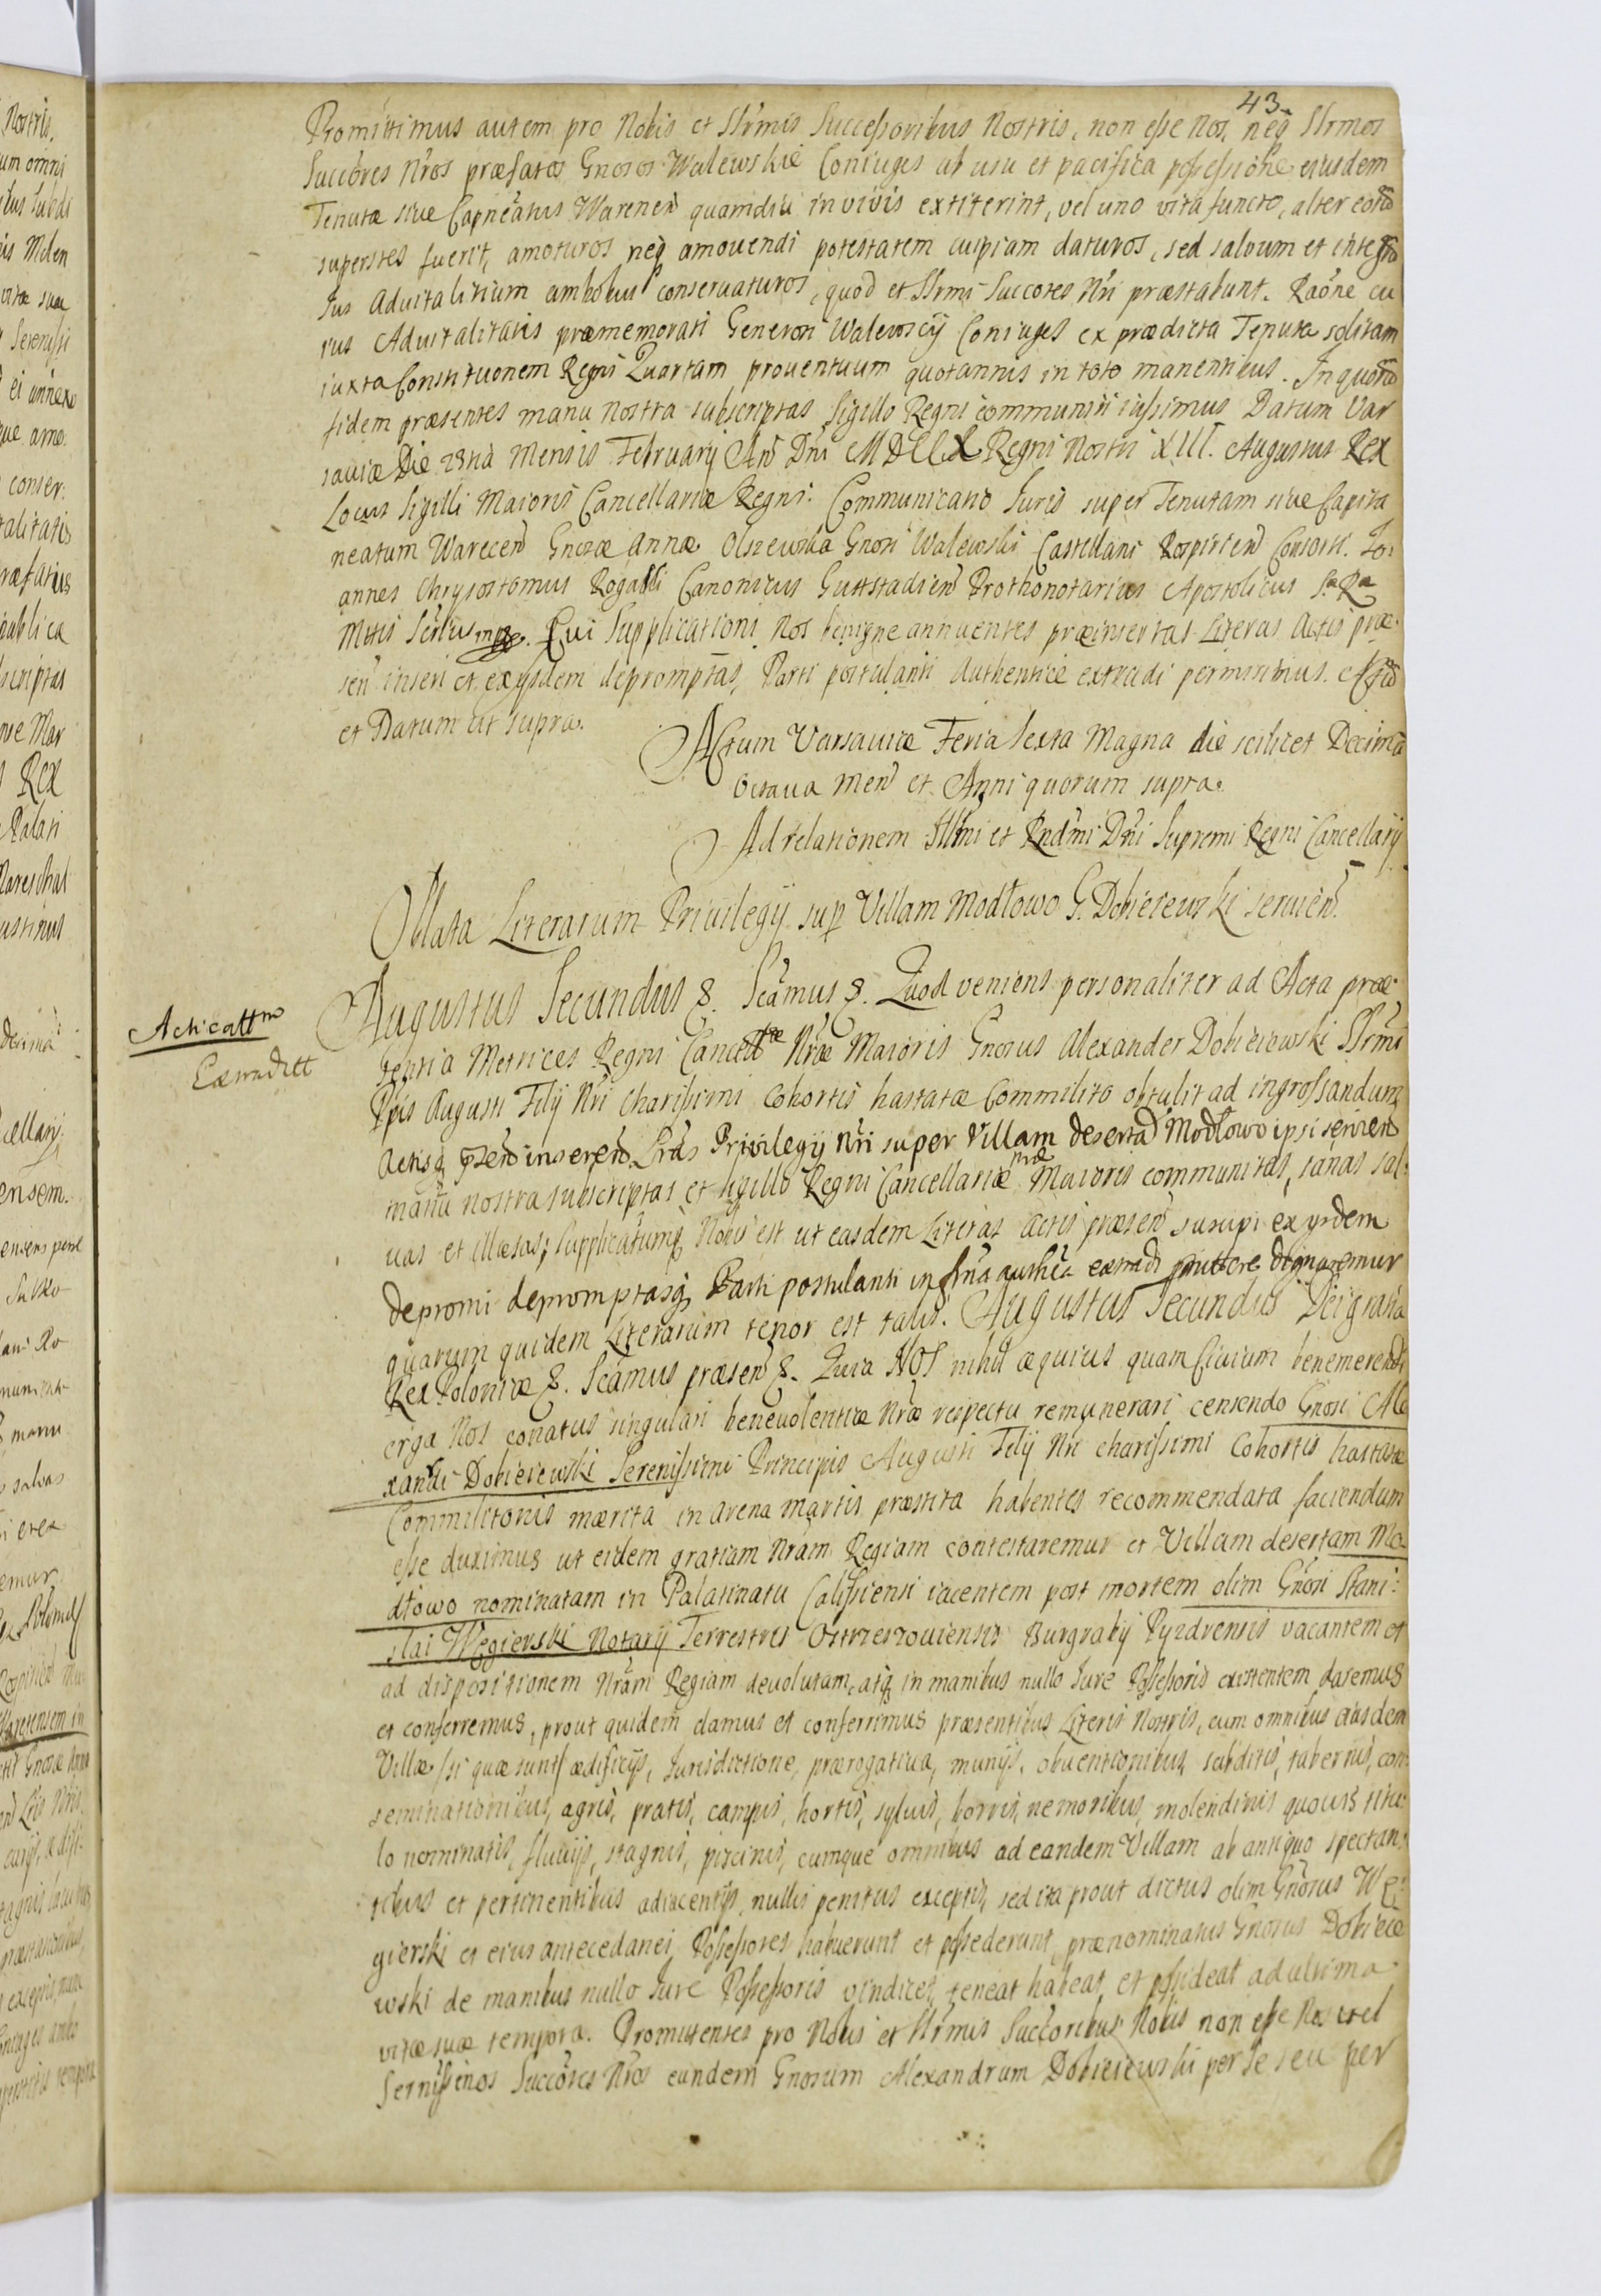 43
Promittimus autem pro Nobis et Sermis Successoribus Nostris, non esse Nos, neq Sermos
Succores Nros præfatos Gnosos Walewskie Coniuges ab usu et pacifica possessione eiusdem
Tenutæ siue Capneatus Warecen quamdiu in vivis extiterint, vel uno vita functo, alter eorū
superstes fuerit, amoturos neq amouendi potestatem cuipiam daturos, sed saluum et integrū
Ius aduitalitium ambobus conseruaturos, quod et Sermi Succores Nri præstabunt. Raōne cu
ius Aduitalitatis præmemorati Generosi Walewscÿ Coniuges ex prædicta Tenuta solitam
iuxta Constituonem Regni Quartam prouentuum quotannis in toto manentibus. In quorū
fidem præsentes manu nostra subscriptas Sigillo Regni communiri iussimus Datum Var
sauiæ Die 28va Mensis Februarÿ An Dni MDCCX Regni Nostri XIII. Augustus Rex
Locus Sigilli Maioris Cancellariæ Regni. Communicatio Iuris super Tenutam siue Capita
neatum Warecen Gnosæ Annæ Olszewska Gnosi Walewski Castellani Rospirien Consorti. Io:
annes Chrysostomus Rogalli Canonicus Guttstadien Prothonotarius Apostolicus Sæ Ræ
Mttis Scrius mpp. Cui Supplicationi Nos benigne annuentes præinsertas Literas Actis præ:
sen inseri et ex ÿsdem depromptas, Parti postulanti authentice extradi permisimus. Actū
et Datum ut supra.
Actum Varsauiæ Feria Sexta Magna die scilicet Decima
Octaua Men et Anni quorum supra.
Ad relationem Illmi et Rndmi Dni Supremi Regni Cancellarÿ
Oblata Literarum Priuilegÿ sup Villam Modłowo G. Dobieiewski seruien.
Acticattm
Extraditt
Augustus Secundus &. Scamus &. Quod veniens personaliter ad Acta præ
sentia Metrices Regni Cancellræ Nræ Maioris Gnosus Alexander Dobieiewski Sermi
Ppis Augusti Filÿ Nri Charissimi Cohortis hastatæ Commilito obtulit ad ingrossandum
Actisq pñtibus inseren Lras Priuilegÿ Nri super Villam desertā Modłowo ipsi seruien
manu nostra subscriptas et sigillo Regni Cancellariæ nræ Maioris communitas, sanas sal:
uas et illæsas; Supplicatumq Nobis est ut easdem Literas Actis præsen suscipi ex ÿsdem
depromi depromptasq Parti postulanti in forma authca extradi pmittere dignaremur
quarum quidem Literarum tenor est talis. Augustus Secundus Dei gratia
Rex Poloniæ &. Scamus præsen &. Quia NOS nihil æquius quam Ciuium benemerendi
erga Nos conatus singulari beneuolentiæ Nræ respectu remunerari censendo Gnosi Ale
xandri Dobieiewski Serenissimi Principis Augusti Filÿ Nri charissimi Cohortis hastatæ
Commilitonis mærita in arena martis præstita habentes recommendata faciendum
esse duximus ut eidem gratiam Nram Regiam contestaremur et Villam desertam Mo
dłowo nominatam in Palatinatu Calissiensi iacentem post mortem olim Gnosi Stani:
slai Węgierski Notarÿ Terrestris Ostrzeszouiensis Burgrabÿ Pyzdrensis vacantem et
ad dispositionem Nram Regiam deuolutam, atq in manibus nullo Iure Possessoris existentem daremus
et conferremus, prout quidem damus et conferrimus præsentibus Literis Nostris, cum omnibus eiusdem
Villæ /si quæ sunt/ ædificÿs, Iurisdictione, prærogatiua, munÿs, obuentionibus, subditis, tabernis, con
seminationibus, agris, pratis, campis, hortis, syluis, borris, nemoribus, molendinis quouis titu:
lo nominatis, fluuÿs, stagnis, piscinis, cumque omnibus ad eandem Villam ab antiquo spectan:
tibus et pertinentibus adiacentÿs, nullis penitus exceptis, sed ita prout dictus olim Gnosus Wę:
gierski et eius antecedanei, Possessores habuerunt et possederunt, prænominatus Gnosus Dobieie
wski de manibus nullo Iure Possessoris vindicet, teneat habeat, et possideat ad ultima
vitæ suæ tempora. Promittentes pro Nobis et Sermis Succoribus Nobis non esse Nos vel
Sernissimos Succores Nros eundem Gnosum Alexandrum Dobieiewski per se seu per